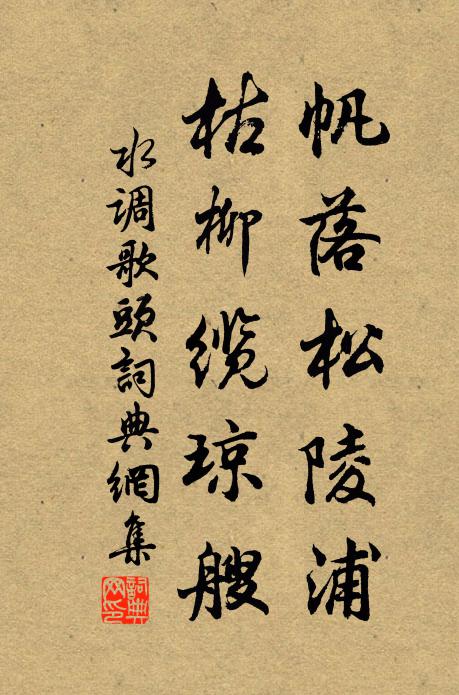 帆落松陵浦
枯柳缆琼艘
水调歌頭詞典網集
詞典网印